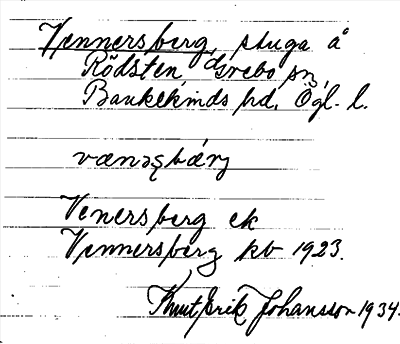 Vennersberg, stuga å
Rödsten, Grebo sn,
Bankekinds hd, Ögl. l.
Venersberg ek
Vennersberg kb 1923.
Knut Erik Johansson 1934.